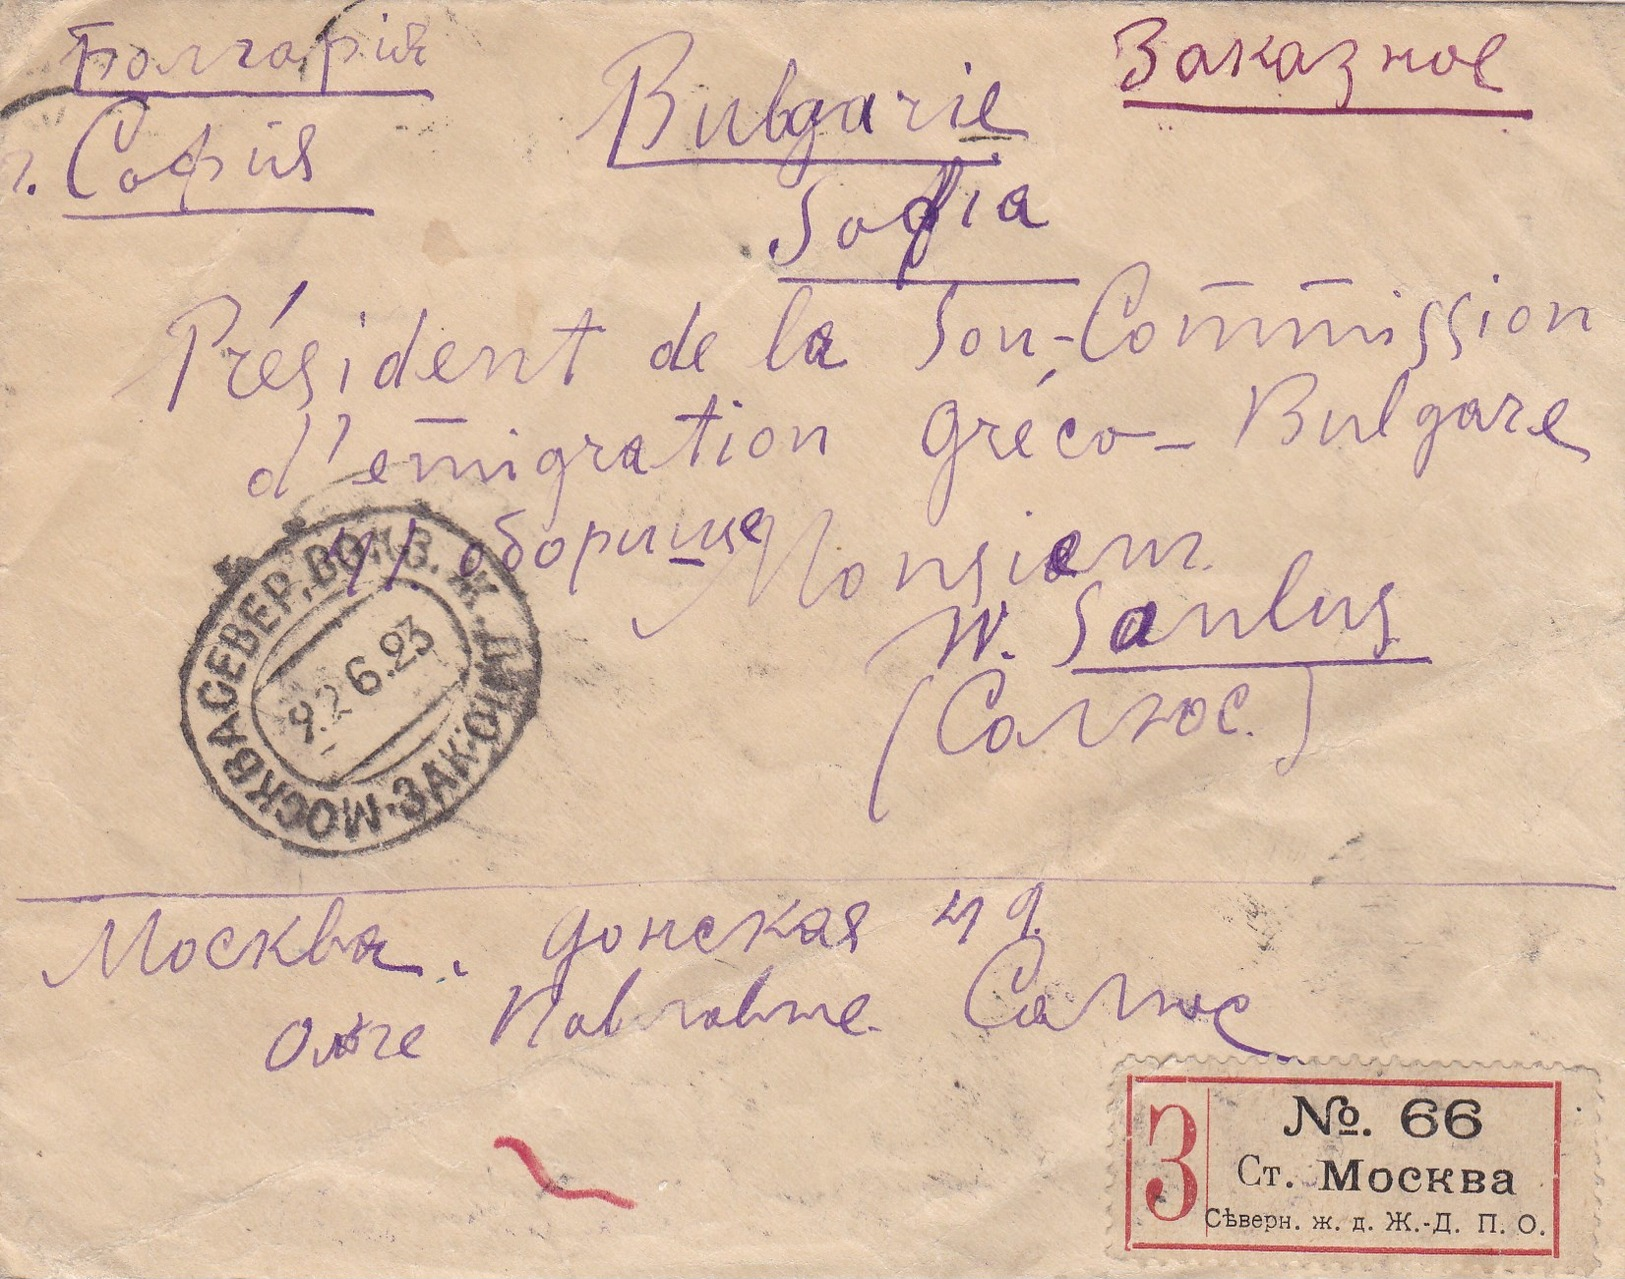 Болгарія
г. Софія
Bulgarie
Sofia
Заказное
Président de la Sou-Com̅m̅ission
d'em̅igration Gréco-Bulgare
оборище Monsieur
W. Saulus
(Салюс.)
МОСКВА СЕВЕР. ВОКЗ. Ж.Д.П.О. МОСК. ЗАК.
9.2 6.23
Москва. Донская
Ольге Павловне Салюс
З
№. 66
Ст. Москва
Сѣверн. ж. д. Ж.-Д. П. О.